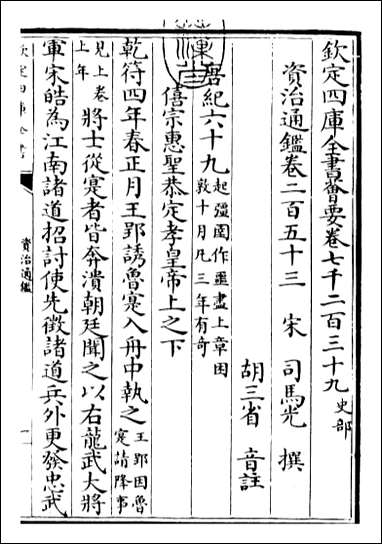 欽定四庫全書薈要卷七千二百三十九 史部
資治通鑑卷二百五十三
宋 司馬光 撰
胡三省 音註
唐紀六十九 起彊圉作噩盡上章困敦十月凡三年有奇
僖宗惠聖恭定孝皇帝上之下
乾符四年春正月王郢誘魯寔入舟中執之 王郢因魯寔請降事
見上卷上年 將士從寔者皆奔潰朝廷聞之以右龍武大將
軍宋皓為江南諸道招討使先徵諸道兵外更發忠武
欽定四庫全書
資治通鑑
一